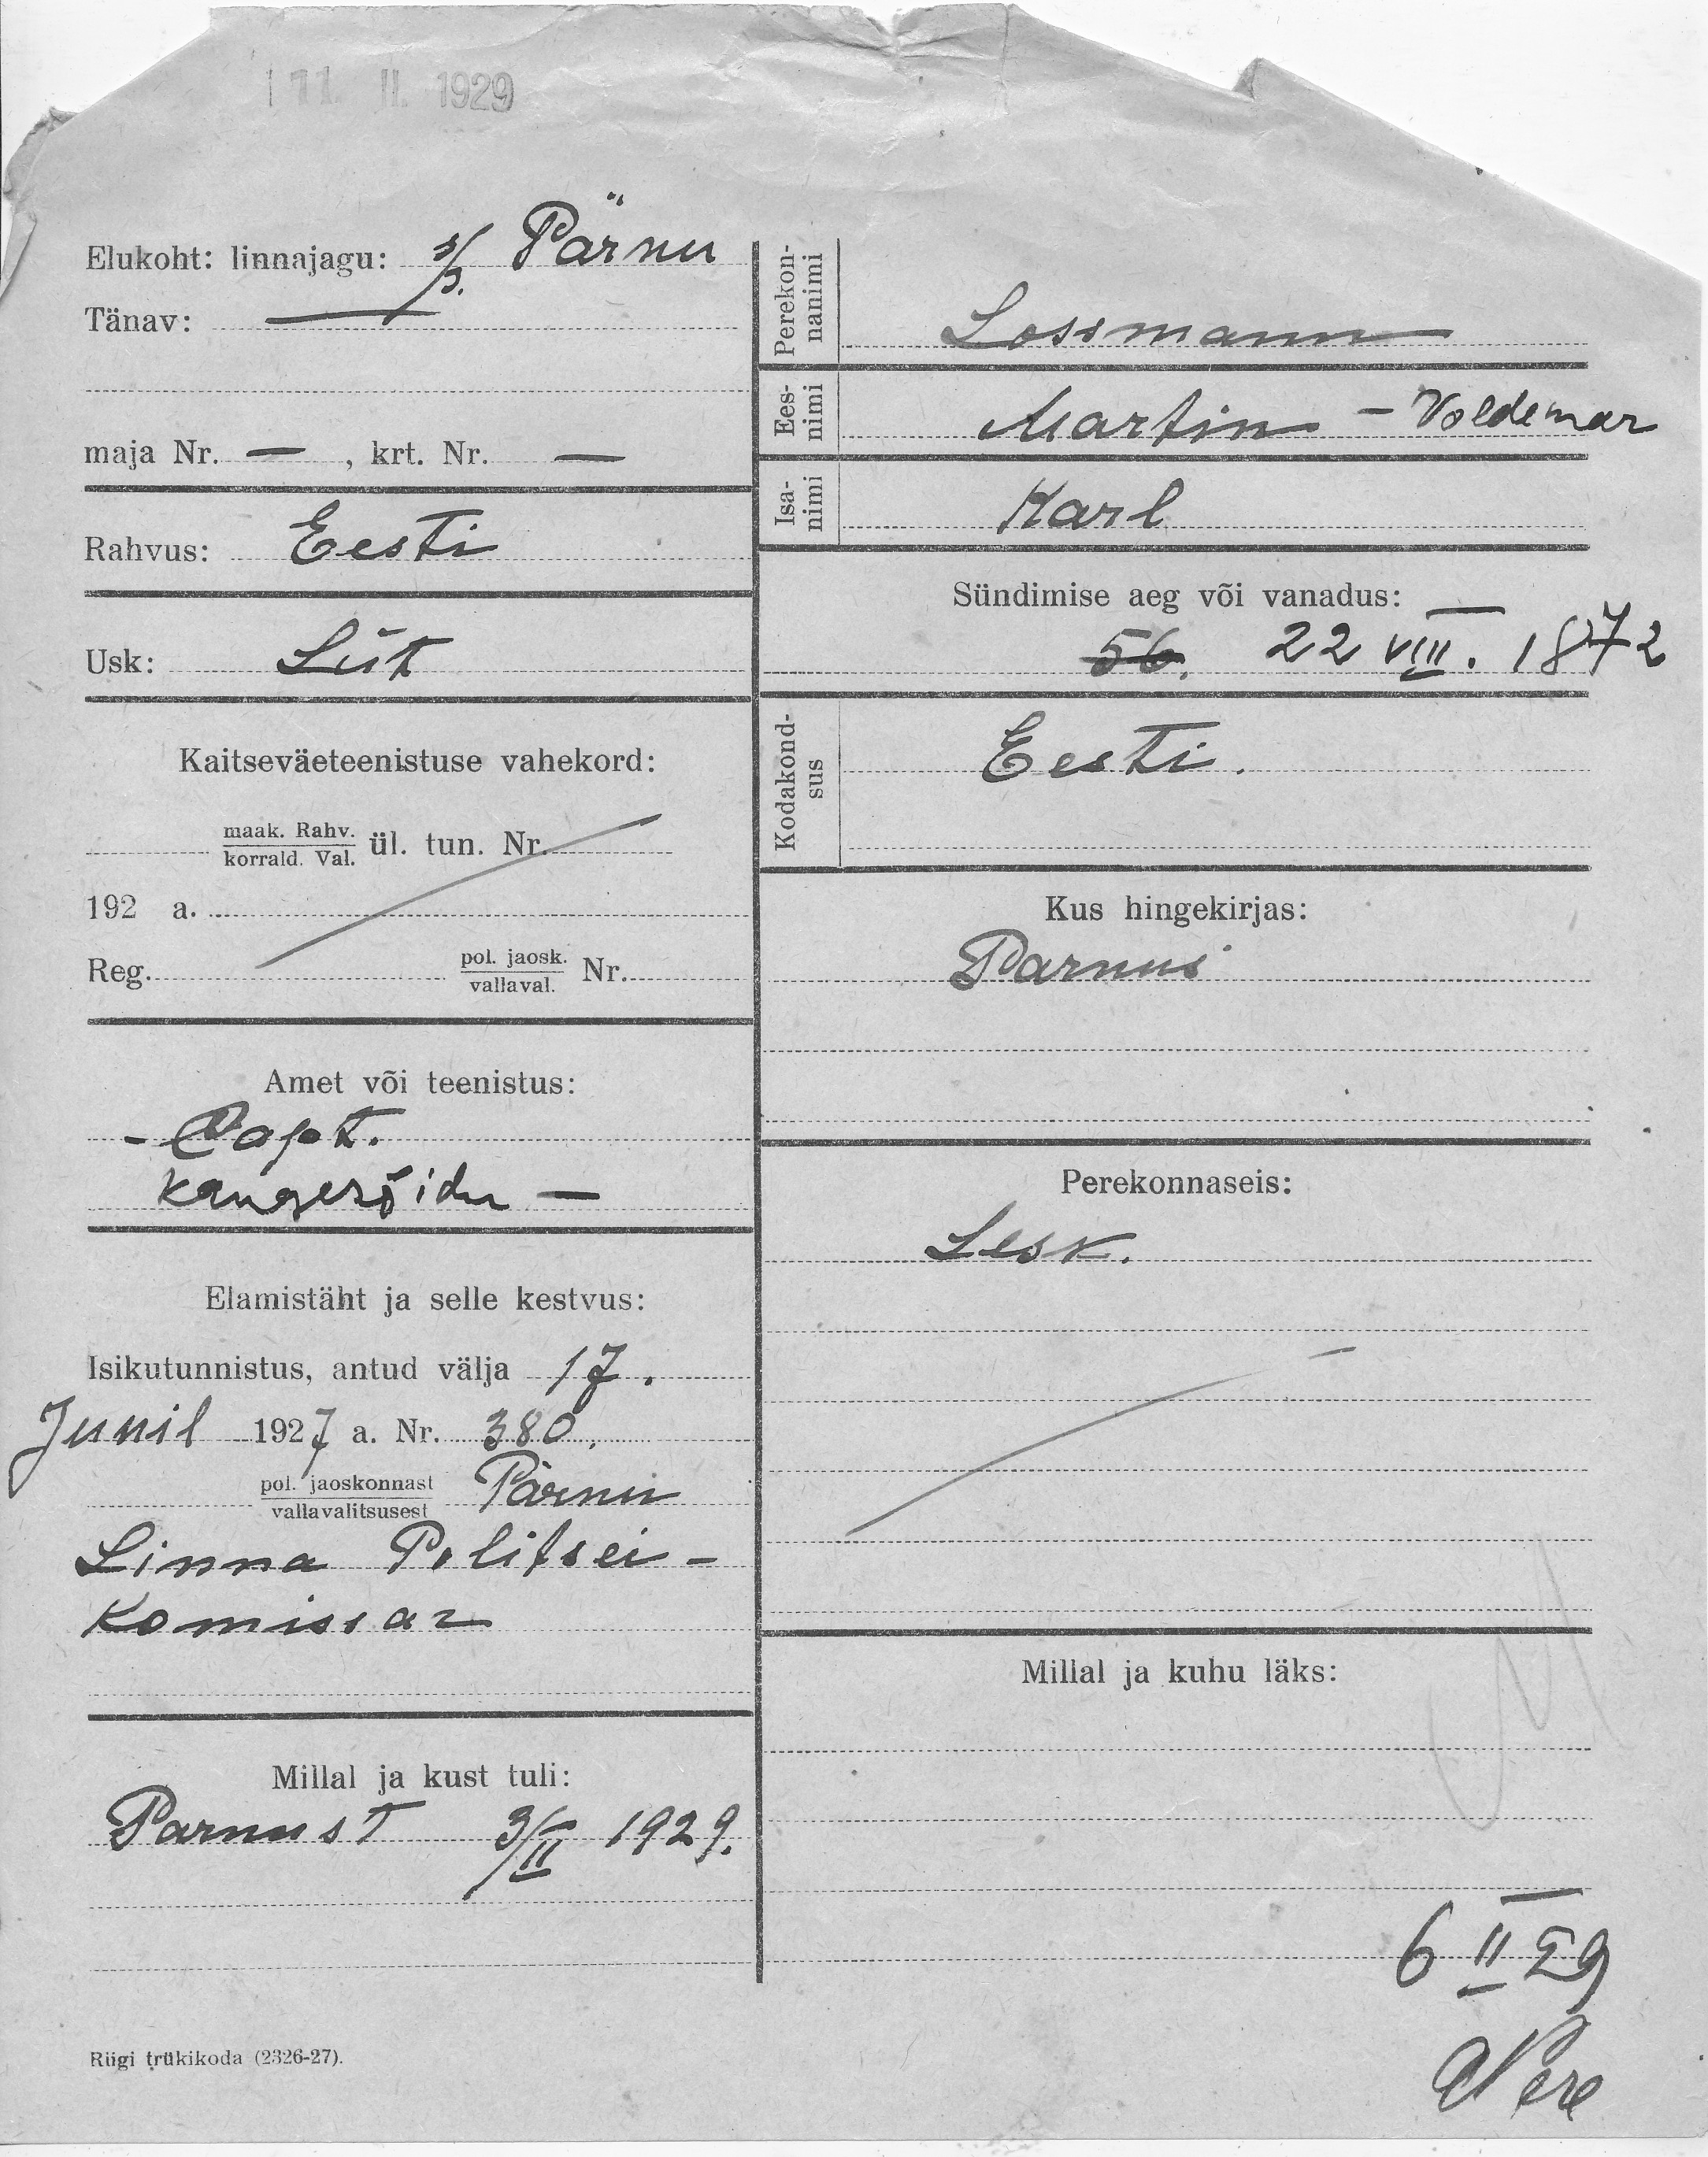 11. II. 1929
Elukoht: linnajagu: s/p. Pärnu
Tänav: —
maja Nr. — , krt. Nr. —
Rahvus: Eesti
Usk: Lut
Kaitseväeteenistuse vahekord:
maak. Rahv.
korrald. Val. ül. tun. Nr.
192 a.
Reg. pol. jaosk.
vallaval. Nr.
Amet või teenistus:
- Capt.
kaugesõidu —
Elamistäht ja selle kestvus:
Isikutunnistus, antud välja 17.
Junil 1927 a. Nr. 380.
pol. jaoskonnast
vallavalitsusest Pärnu
Linna Politsei -
Komissar
Millal ja kust tuli:
Parnust 3/II 1929.
Riigi trükikoda (2326-27).
Perekon-
nanimi
Lossmann
Ees-
nimi
Martin - Voldemar
Isa-
nimi
Karl
Sündimise aeg või vanadus:
56. 22 VIII. 1872
Kodakond-
sus
Eesti.
Kus hingekirjas:
Parnus
Perekonnaseis:
Lesk.
Millal ja kuhu läks:
6 II 29